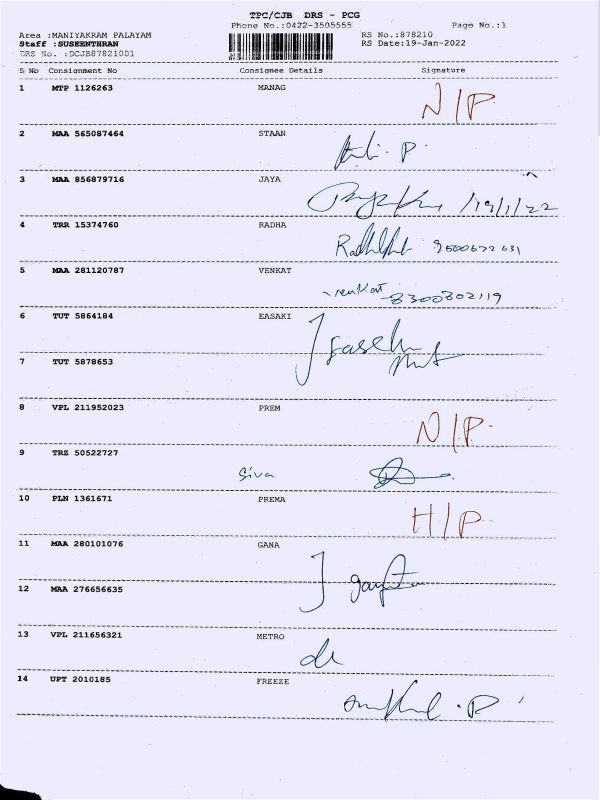 TPC/CJB DRS - PCG
Phone No.:0422-3505555 Page No.:1
Area :MANIYAKRAM PALAYAM RS No.:878210
Staff :SUSEENTHRAN RS Date:19-Jan-2022
DRS No. :DCJB87821001
S No Consignment No Consignee Details Signature
1 MTP 1126263 MANAG N/P
2 MAA 565087464 STAAN
3 MAA 856879716 JAYA 19/1/22
4 TRR 15374760 RADHA 9500672631
5 MAA 281120787 VENKAT venkat 8300802119
6 TUT 5864184 EASAKI
7 TUT 5878653
8 VPL 211952023 PREM N/P.
9 TRZ 50522727 Siva
10 PLN 1361671 PREMA H/P
11 MAA 280101076 GANA
12 MAA 276656635
13 VPL 211656321 METRO
14 UPT 2010185 FREEZE